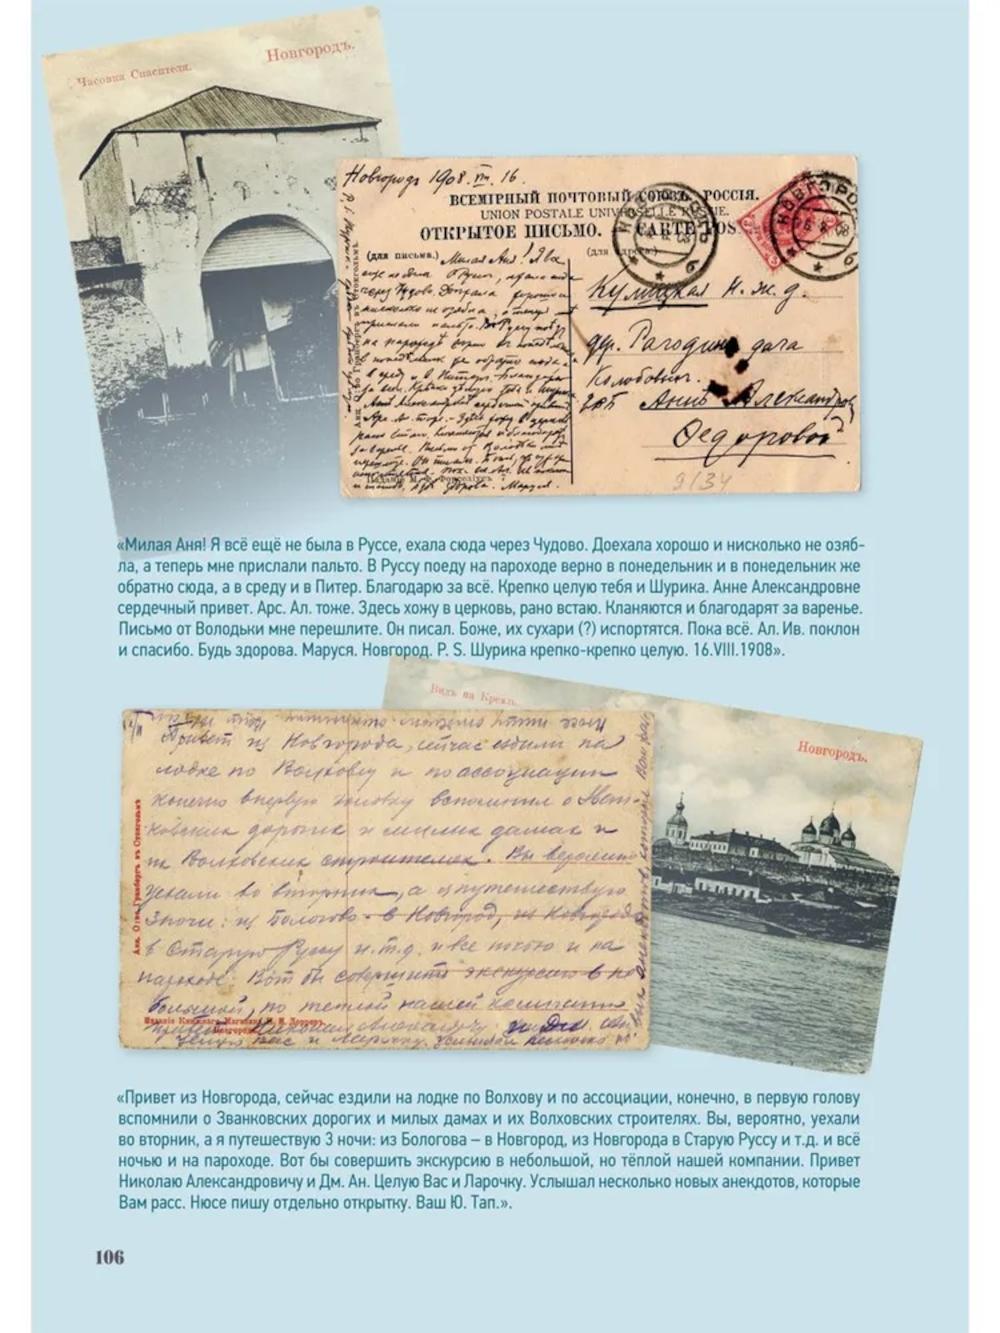 Часовня Спасителя.
Новгородъ.
Новгородъ 1908. VIII. 16.
ВСЕМІРНЫЙ ПОЧТОВЫЙ СОЮЗЪ. РОССІЯ.
UNION POSTALE UNIVERSELLE RUSSIE.
ОТКРЫТОЕ ПИСЬМО. — CARTE POS
(для письма.)
(для адреса.)
Милая Аня! Я всё
еще не была в Руссе, ехала сюда
через Чудово. Доехала хорошо и
нисколько не озябла, а теперь
прислали пальто. В Руссу поеду
на пароходе верно в понедельн
НОВГОРОДЪ
НОВГОРО
Кулицкая Н. ж. д.
Рагодина дача
Колобович.
Аннѣ Александров
Федоровой
9/34
Акц. О-во Гранбергъ въ Стокгольмѣ.
Изданіе М.
«Милая Аня! Я всё ещё не была в Руссе, ехала сюда через Чудово. Доехала хорошо и нисколько не озяб-
ла, а теперь мне прислали пальто. В Руссу поеду на пароходе верно в понедельник и в понедельник же
обратно сюда, а в среду и в Питер. Благодарю за всё. Крепко целую тебя и Шурика. Анне Александровне
сердечный привет. Арс. Ал. тоже. Здесь хожу в церковь, рано встаю. Кланяются и благодарят за варенье.
Письмо от Володьки мне перешлите. Он писал. Боже, их сухари (?) испортятся. Пока всё. Ал. Ив. поклон
и спасибо. Будь здорова. Маруся. Новгород. P. S. Шурика крепко-крепко целую. 16.VIII.1908».
Видъ на Кремль.
Новгородъ.
Привет из Новгорода, сейчас ездили на
лодке по Волхову и по ассоциации
конечно в первую головку вспомнили о Зван
ковских дорогих и милых дамах и
их Волховских строителях. Вы вероятно
уехали во вторник, а я путешествую
3 ночи: из Бологово - в Новгород, из Новгорода
в Старую Руссу и.т.д. и все ночью и на
пароходе. Вот бы совершить экскурсию в не
большой, но теплой нашей компании
Акц. О-во Гранбергъ въ Стокгольмѣ
Изданіе Книжнаго Магазина
«Привет из Новгорода, сейчас ездили на лодке по Волхову и по ассоциации, конечно, в первую голову
вспомнили о Званковских дорогих и милых дамах и их Волховских строителях. Вы, вероятно, уехали
во вторник, а я путешествую 3 ночи: из Бологова – в Новгород, из Новгорода в Старую Руссу и т.д. и всё
ночью и на пароходе. Вот бы совершить экскурсию в небольшой, но тёплой нашей компании. Привет
Николаю Александровичу и Дм. Ан. Целую Вас и Ларочку. Услышал несколько новых анекдотов, которые
Вам расс. Нюсе пишу отдельно открытку. Ваш Ю. Тап.».
106